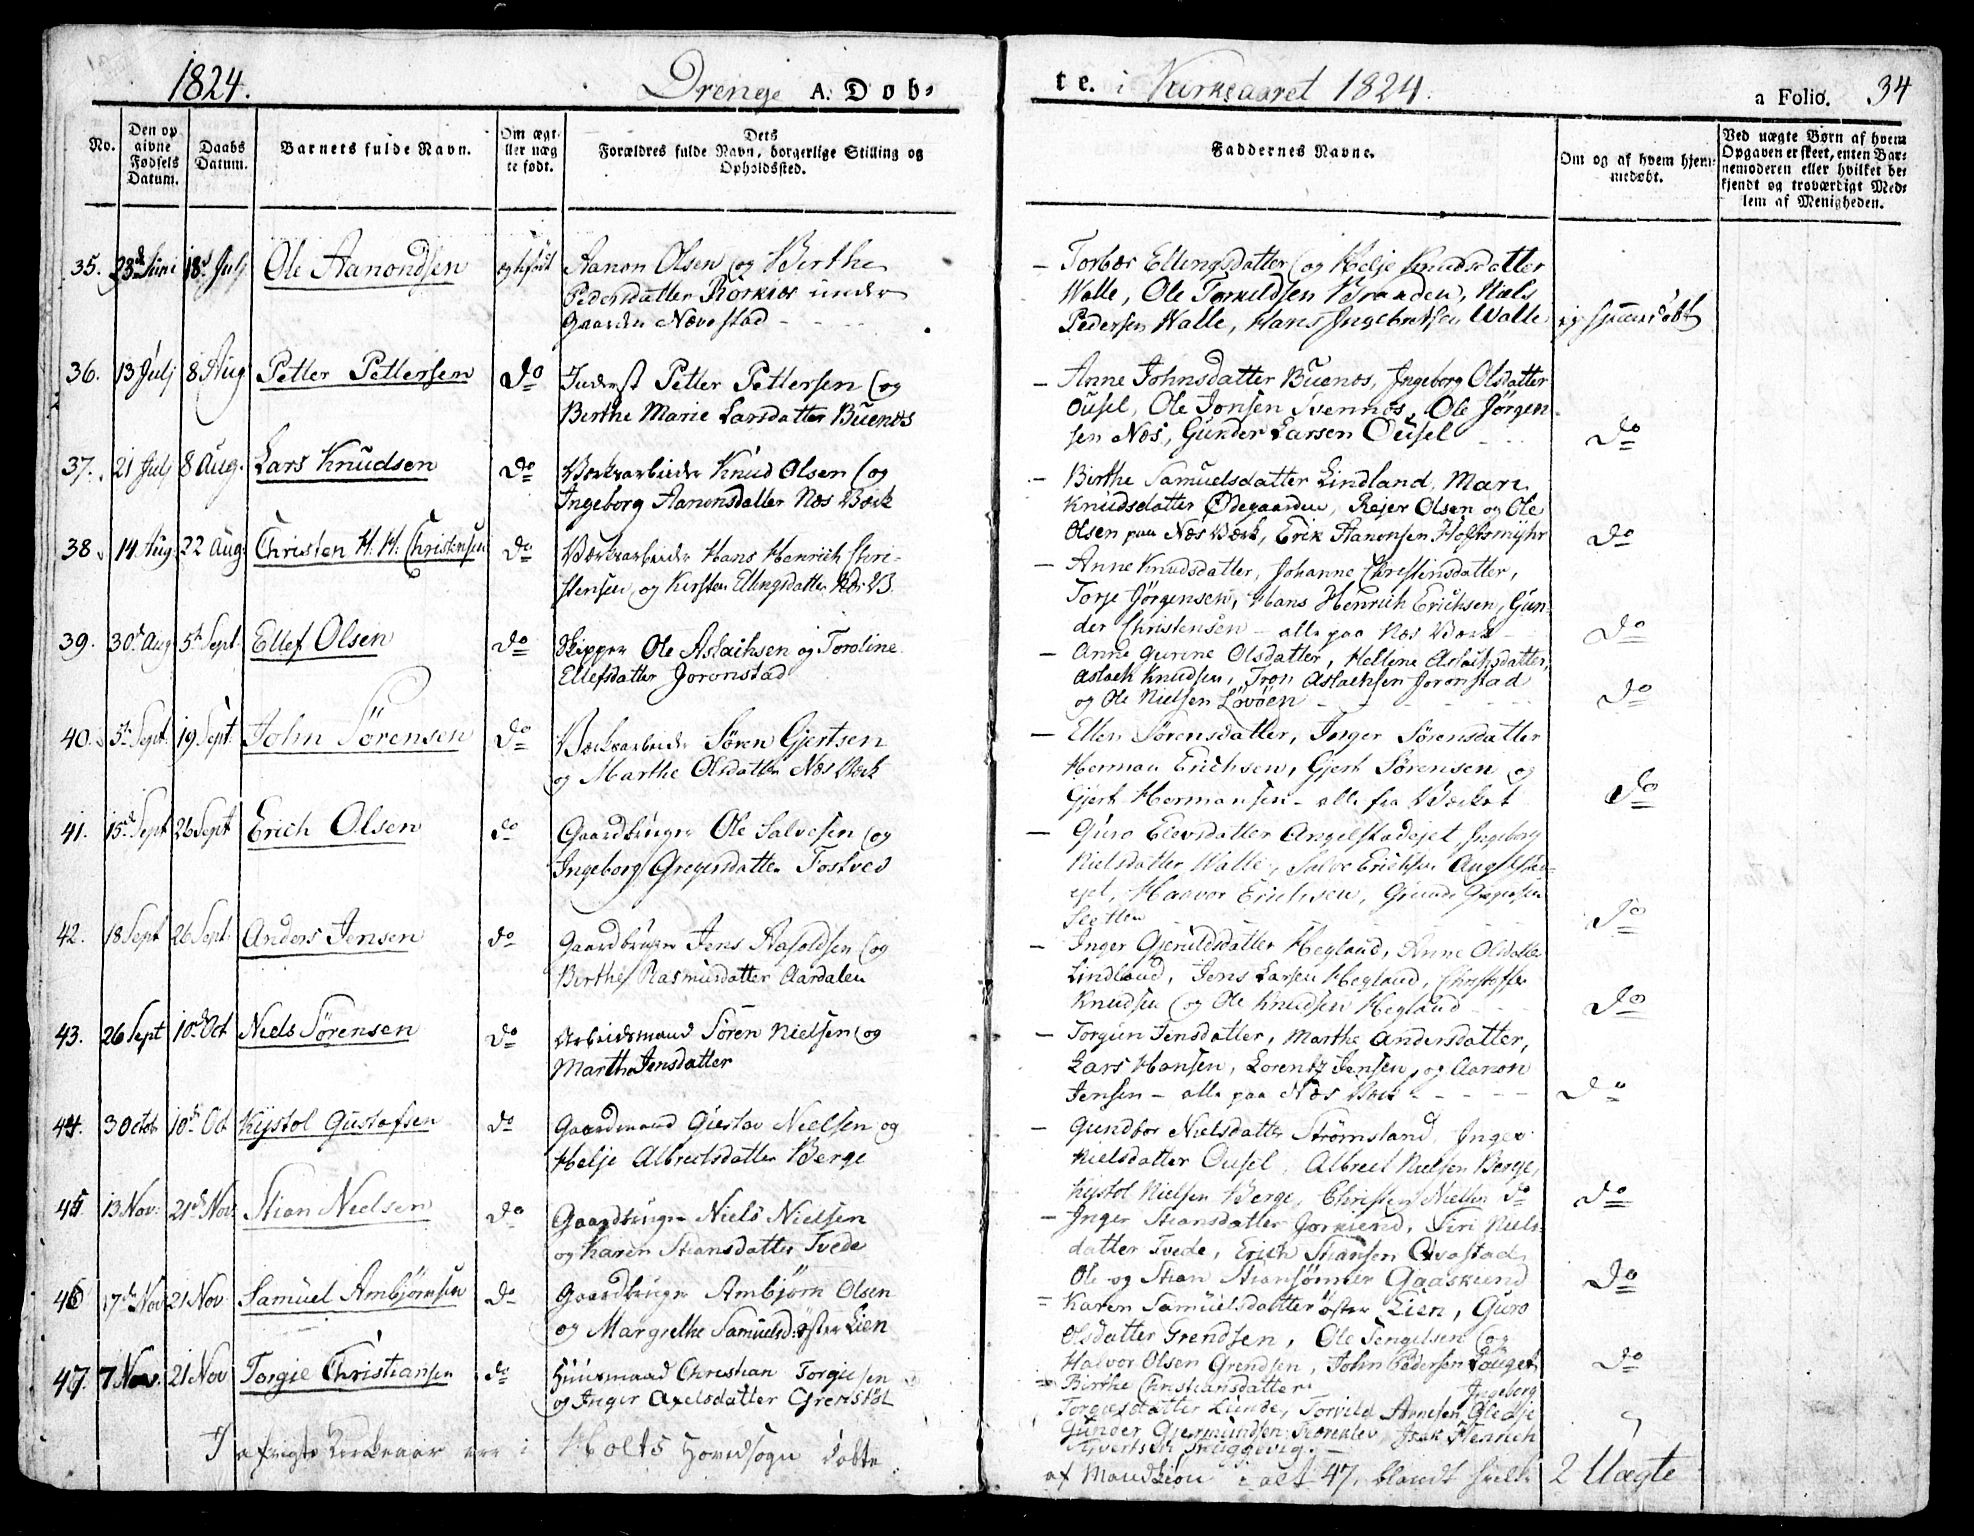 1824. Drenge A. Døb-
No.
Den op
givne
Fødsels
Datum.
Daabs
Datum.
Barnets fulde Navn.
Om ægt-
eller uæg
te født.
Dets
Forældres fulde Navn, borgerlige Stilling og
Opholdssted.
35. 23d Juni 18d Julj Ole Aanondsen Aanon Olsen og Berthe
Pedersdatter under
Gaarden Næves­tad
36. 13 Julj 8 Aug Petter Pettersen do Inderst Petter Pettersen og
Berthe Marie Larsdatter Buenæs
37. 21 Julj 8 Aug. Lars Knudsen do Værksarbeider Knud Olsen og
Ingeborg Aanonsdatter Næs Værk
38. 14 Aug. 22 Aug. Christen H. H. Christensen do Værksarbeider Hans Henrich Chri-
stensen og Kirsten Ellingsdatter
39. 30d Aug 5te Sept. Ellef Olsen do Skipper Ole Aslachsen og Toroline
Ellefsdatter Joronstad
40. 5te Sept. 19 Sept. John Sörensen do Værksarbeider Sören Gjertsen
og Marthe Olsdatter Næs Værk
41. 15d Sept 26 Sept Erich Olsen do Gaardbruger Ole Salvesen og
Ingeborg Gregersdatter Fostved
42. 18 Sept 26 Sept. Anders Jensen do Gaardbruger Jens og
Birthe Rasmusdatter Aardalen
43. 26 Sept 10d Oct Niels Sörensen do Arbeidsmand Sören Nielsen og
Marthe Jensdatter
44. 3 Octob 10d Oct Kystol Gustafsen do Gaardmand Gustav Nielsen og
Helje Albrectsdatter Berge
45 13 Nov. 21d Nov. Stian Nielsen do Gaardbruger Niels Nielsen
og Karen Stiansdatter Tvede
46 17d Nov 21 Nov Samuel Ambjörnsen do Gaardbruger Ambjörn Olsen
og Margrethe Samuelsd. öster Lien
47. 7 Nov. 21 Nov Torgie Christiansen do Huusmand Christian Torgiesen
og Inger Axelsdatter Grenstöl
I afvigte Kirkeaar ere i Holts Hovedsogn döbte
te. i Kirkeaaret 1824. a Folio. 34
Faddernes Navne.
Om og af hvem hjem-
medøbt.
Ved uægte Børn af hvem
Opgaven er skeet, enten Bar-
nemoderen eller hvilket be-
kjendt og troværdigt Med-
lem af Menigheden.
Torbor Ellingsdatter og Helje Knudsdatter
Walle, Ole Torkildsen Braaden, Niels
Pedersen Walle, Hans Ingebretsen Walle
Anne Johnsdatter Buenæs, Ingeborg Olsdatter
Ousel, Ole Jonsen Svennæs, Ole Jörgen-
sen Næs, Gunder Larsen Ousel do
Birthe Samuelsdatter Lindland, Mari
Knudsdatter Ödegaarden, Rejer Olsen og Ole
Olsen paa Næs Værk, Erik Aanonsen do
Anne Knudsdatter, Johanne Christensdatter,
Torje Jörgensen, Hans Henrich Erichsen, Gun-
der Christensen - alle paa Næs Værk do
Anne Gurine Olsdatter, Helline Aslachsdatter,
Aslach Knudsen, Tron Aslachsen Joronstad
og Ole Nielsen Lövöen do
Ellen Sörensdatter, Inger Sörensdatter
Herman Erichsen, Gjert Sörensen og
Gjert Hermansen - alle fra Værket do
Guro Elevsdatter Angelstadejet, Ingeborg
Nielsdatter Walle, Salve Erichsen Angelstad-
ejet, Haavor Erichsen,
Sletten do
Inger Gjeruldsdatter Hegland, Anne Olsdatter
Lindland, Jens Larsen Hegland, Christoffer
Knudsen og Ole Knudsen Hegland do
Torgun Jensdatter, Marthe Andersdatter,
Lars Hansen, Lorentz Jensen, og Aanon
Jensen - alle paa Næs Værk do
Gundbor Nielsdatter Strömsland, Inger
Nielsdatter Ousel, Albrect Nielsen Berge,
Kystol Nielsen Berge, Christen Nielsen do do
Inger Stiansdatter Gjorkiend, Siri Niels-
datter Tvede, Erich Stiansen
Ole og Stian Stiansönner Gaaskiend do
Karen Samuelsdatter öster Lien, Guro
Olsdatter Grendsen, Ole Tengelsen og
Halvor Olsen Grendsen, John Pedersen do
Birthe Christiansdatter Ingeborg
Torgiesdatter Lunde, Torvild Arnesen
Gunder Gjermundsen Isak Henrich
Evertsen Skuggevig.
af Mandkiön i alt 47, blandt hvilke 2 Uægte